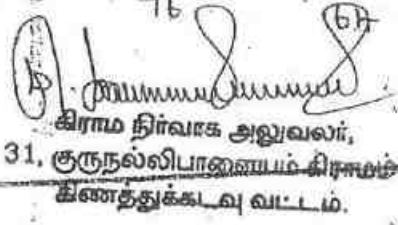 கிராம நிர்வாக அலுவலர்,
31, குருநல்லிபாளையம் கிராமம்
கிணத்துக்கடவு வட்டம்.